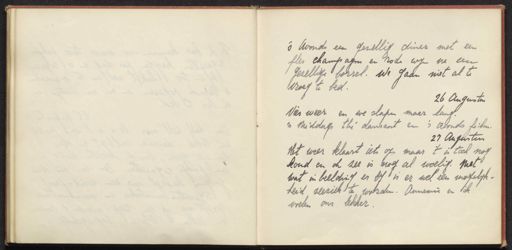 's Avonds een gezellig diner met een
fles champagne en rode wijn na een
gezellige borrel. We gaan niet al te
vroeg te bed.
26 Augustus
Vies weer en we slapen maar lang.
's Middags thé dansant en 's avonds film.
27 Augustus
Het weer klaart iets op maar 't is toch nog
koud en de zee is nog al woelig. Met
wat inbeelding er bij is er wel een mogelijk-
heid zeeziek te worden. Annemie en ik
voelen ons lekker.